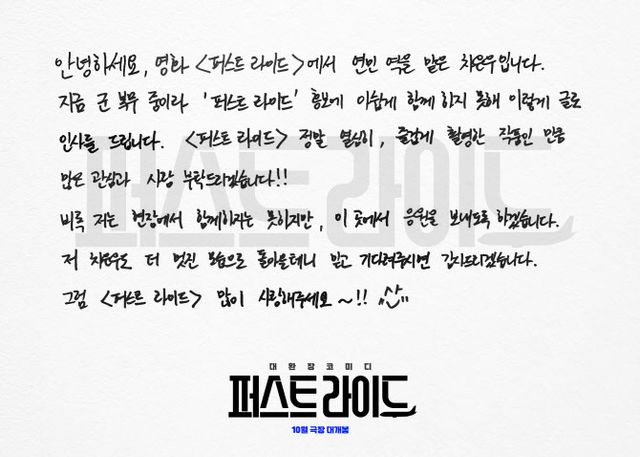 안녕하세요, 영화 <퍼스트 라이드>에서 연민 역을 맡은 차은우입니다.
지금 군 복무 중이라 '퍼스트 라이드' 홍보에 아쉽게 함께 하지 못해 이렇게 글로
인사를 드립니다. <퍼스트 라이드> 정말 열심히, 즐겁게 촬영한 작품인 만큼
많은 관심과 사랑 부탁드리겠습니다!!
비록 저는 현장에서 함께하지는 못하지만, 이 곳에서 응원을 보내도록 하겠습니다.
저 차은우도 더 멋진 모습으로 돌아올테니 믿고 기다려주시면 감사드리겠습니다.
그럼 <퍼스트 라이드> 많이 사랑해주세요~!! ^^
퍼스트 라이드
대환장코미디
퍼스트 라이드
10월 극장 대개봉